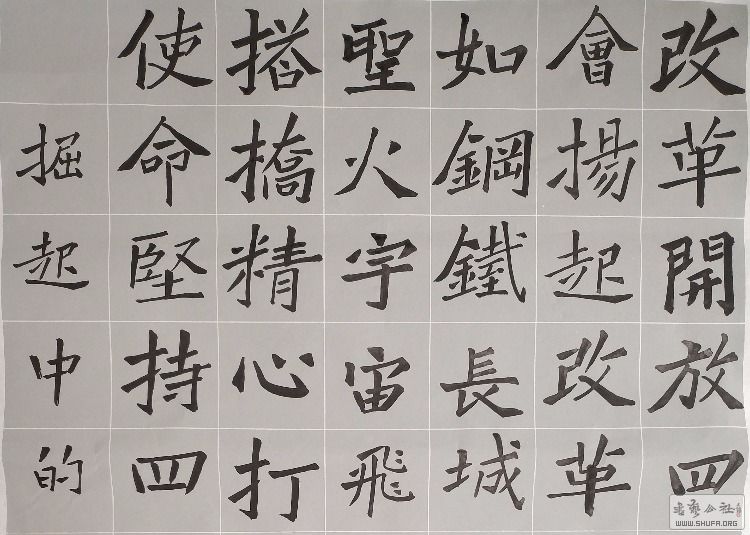 改革開放四
會揚起改革
如鋼鐵長城
聖火宇宙飛
搭撟精心打
使命堅持四
掘起申的
書藝公社
WWW.SHUFA.ORG